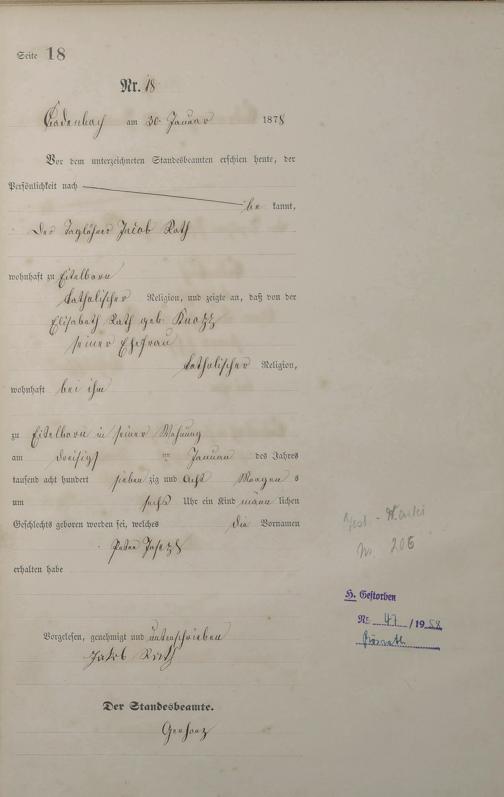 Seite 18
Nr. 18
Cadenbach am 30 Januar 1878
Vor dem unterzeichneten Standesbeamten erschien heute, der
Persönlichkeit nach
be kannt,
Der Taglöhner Jacob Rath
wohnhaft zu Eitelborn
katholischer Religion, und zeigte an, daß von der
Elisabeth Rath geb.
seiner Ehefrau
katholischer Religion,
wohnhaft bei ihm
zu Eitelborn in seiner Wohnung
am dreisigst en Januar des Jahres
tausend acht hundert sieben zig und acht Morgen s
um sechs Uhr ein Kind männ lichen
Geschlechts geboren worden sei, welches die Vornamen
Peter Josef
erhalten habe
Vorgelesen, genehmigt und unterschrieben
Jakob Rath
Der Standesbeamte.
Nr. 206
H. Gestorben
Nr. 47 /19 58